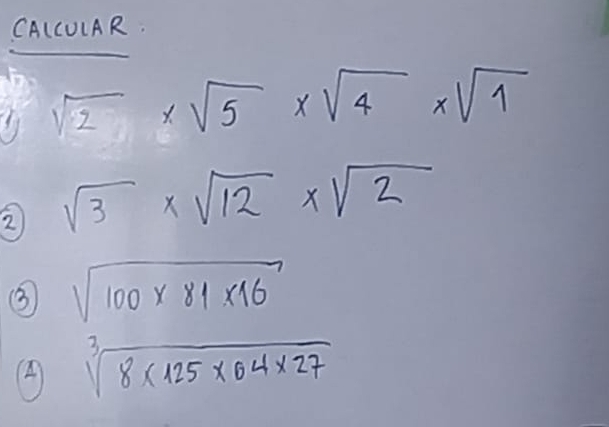 CALCULAR.
① √2 × √5 × √4 × √1
② √3 × √12 × √2
③ √100 × 81 × 16
④ ³√8 × 125 × 64 × 27